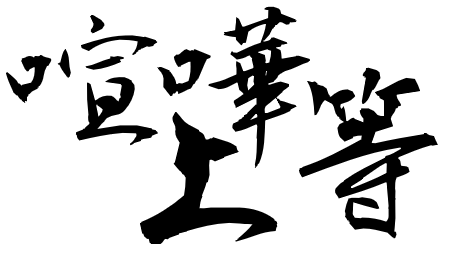 喧嘩上等